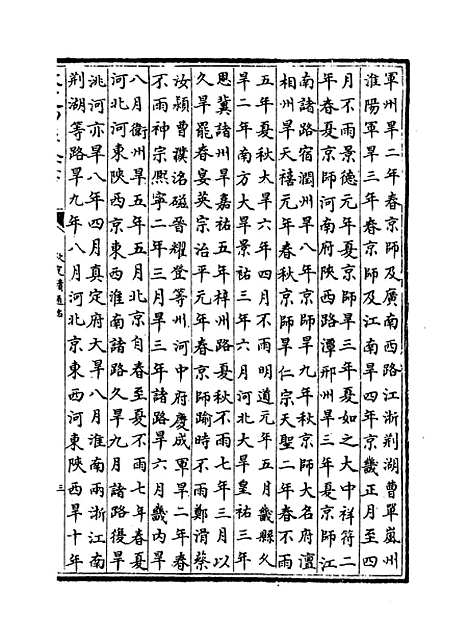 軍州旱二年春京師及廣南西路江浙荆湖曹單嵐州
淮陽軍旱三年春京師及江南旱四年京畿正月至四
月不雨景德元年夏京師旱三年夏如之大中祥符二
年春夏京師河南府陝西路潭邢州旱三年夏京師江
南諸路宿潤州旱八年京師旱九年秋京師大名府澶
相州旱天禧元年春秋京師旱仁宗天聖二年春不雨
五年夏秋大旱六年四月不雨明道元年五月畿縣久
旱二年南方大旱景祐三年六月河北大旱皇祐三年
思冀諸州旱嘉祐五年梓州路夏秋不雨七年三月以
久旱罷春宴英宗治平元年春京師踰時不雨鄭滑蔡
汝潁曹濮洺磁晉耀登等州河中府慶成軍旱二年春
不雨神宗熙寧二年三月旱三年諸路旱六月畿内旱
八月衛州旱五年五月北京自春至夏不雨七年春夏
河北河東陝西京東西淮南諸路久旱九月諸路復旱
洮河亦旱八年四月真定府大旱八月淮南兩浙江南
荆湖等路旱九年八月河北京東西河東陝西旱十年
欽定續通志
三